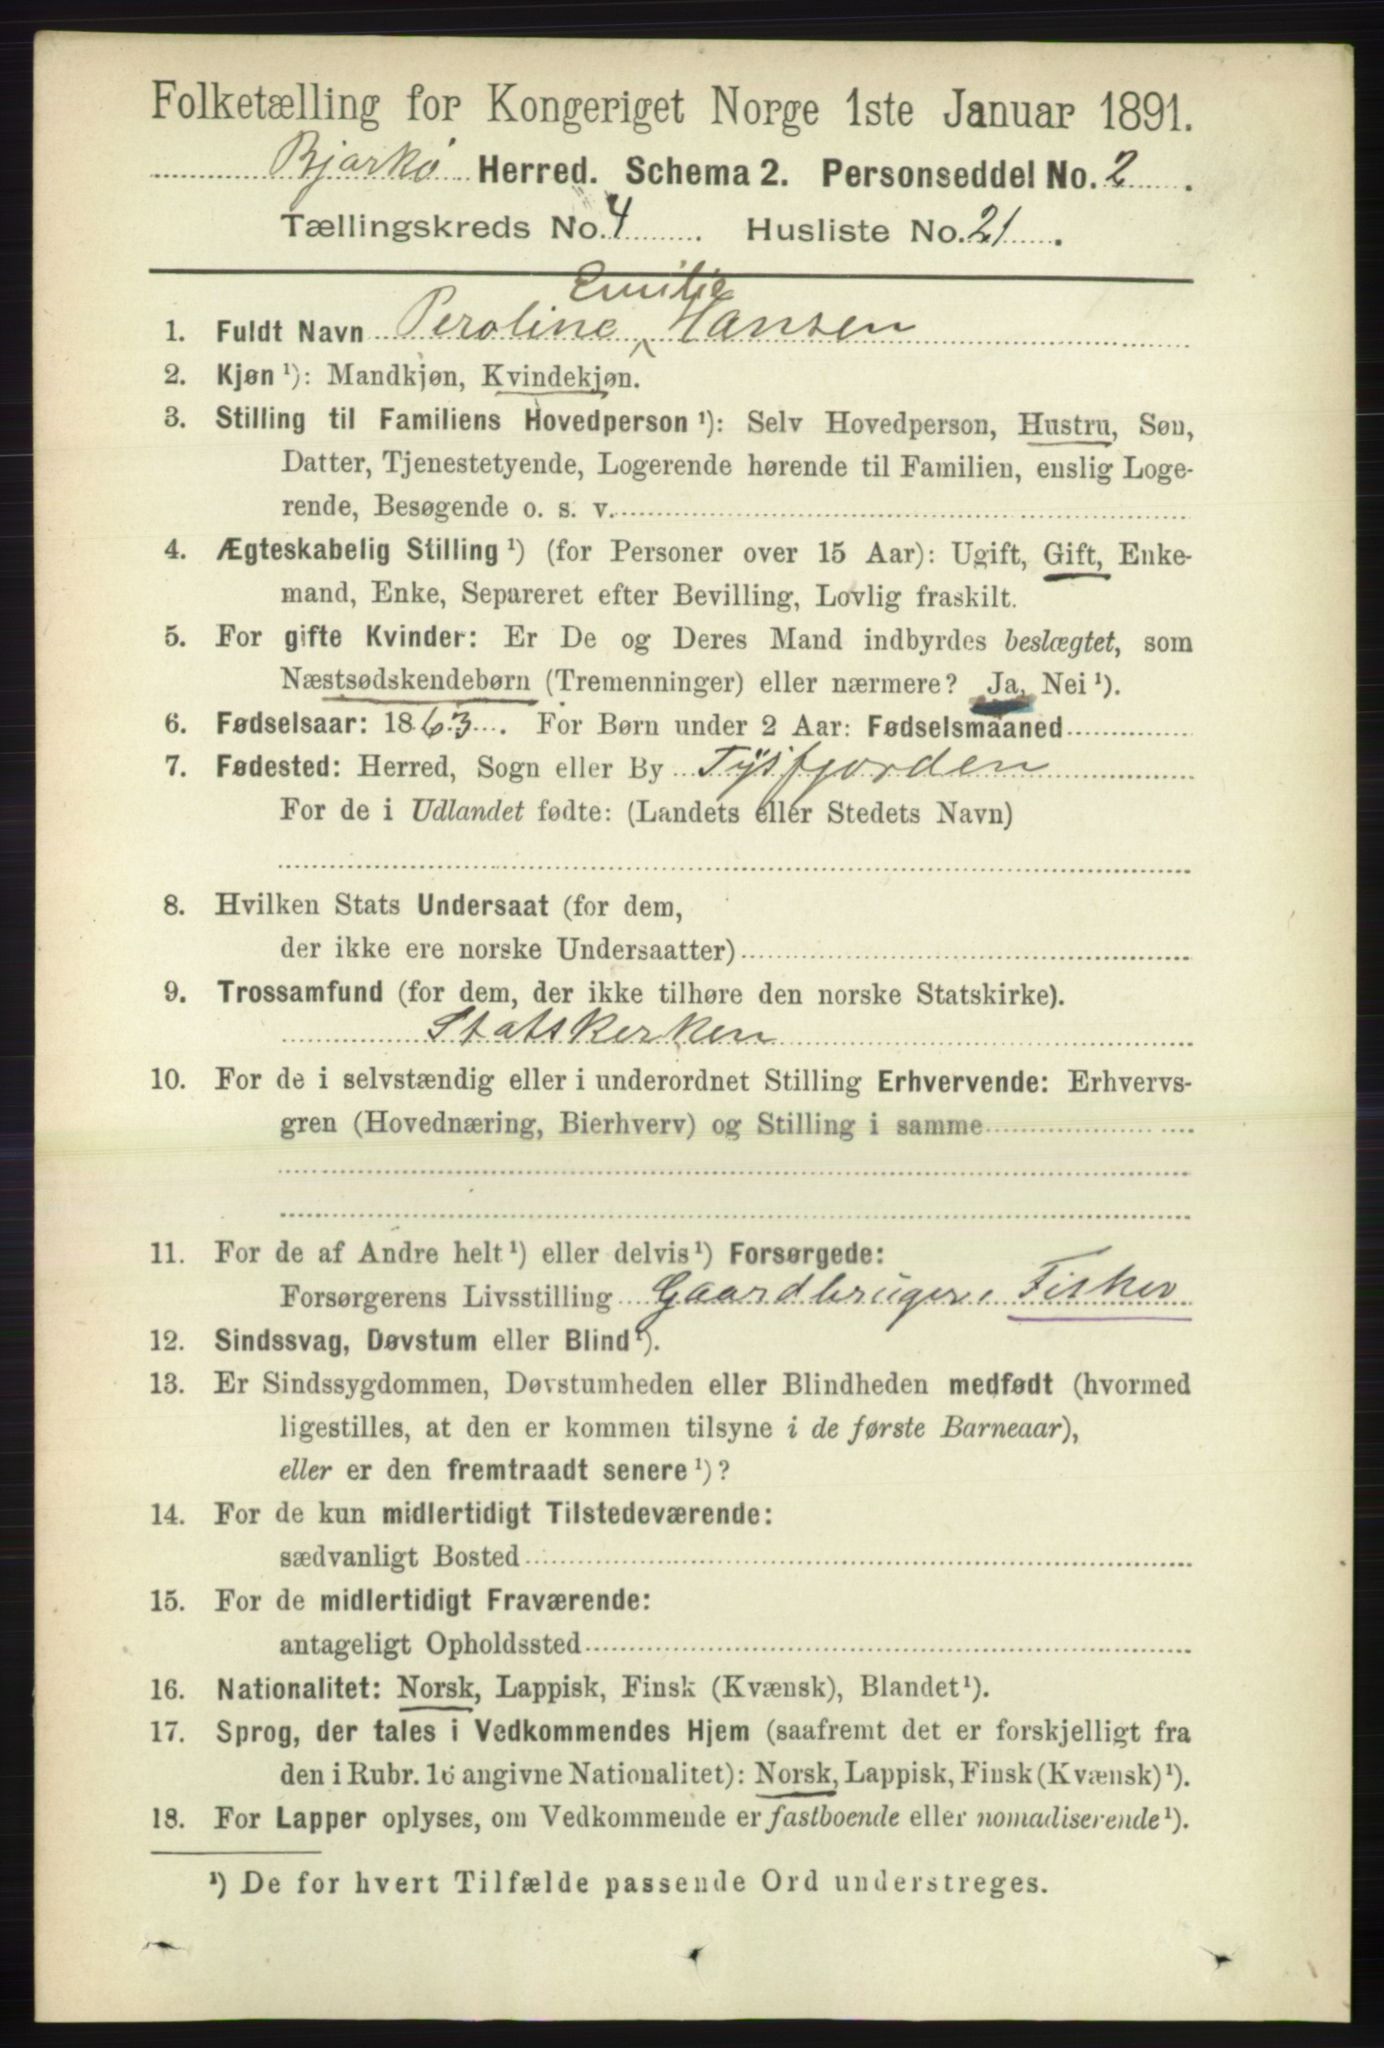 Folketælling for Kongeriget Norge 1ste Januar 1891.
Bjarkø Herred. Schema 2. Personseddel No. 2.
Tællingskreds No. 4. Husliste No. 21.
Emilie
1. Fuldt Navn Peroline ^ Hansen
2. Kjøn ¹): Mandkjøn, Kvindekjøn.
3. Stilling til Familiens Hovedperson ¹): Selv Hovedperson, Hustru, Søn,
Datter, Tjenestetyende, Logerende hørende til Familien, enslig Loge-
rende, Besøgende o. s. v.
4. Ægteskabelig Stilling ¹) (for Personer over 15 Aar): Ugift, Gift, Enke-
mand, Enke, Separeret efter Bevilling, Lovlig fraskilt.
5. For gifte Kvinder: Er De og Deres Mand indbyrdes beslægtet, som
Næstsødskendebørn (Tremenninger) eller nærmere? Ja, Nei ¹).
6. Fødselsaar: 1863. For Børn under 2 Aar: Fødselsmaaned
7. Fødested: Herred, Sogn eller By Tysfjorden
For de i Udlandet fødte: (Landets eller Stedets Navn)
8. Hvilken Stats Undersaat (for dem,
der ikke ere norske Undersaatter)
9. Trossamfund (for dem, der ikke tilhøre den norske Statskirke).
Statskerken
10. For de i selvstændig eller i underordnet Stilling Erhvervende: Erhvervs-
gren (Hovednæring, Bierhverv) og Stilling i samme
11. For de af Andre helt ¹) eller delvis ¹) Forsørgede:
Forsørgerens Livsstilling Gaardbruger, Fisker
12. Sindssvag, Døvstum eller Blind ¹).
13. Er Sindssygdommen, Døvstumheden eller Blindheden medfødt (hvormed
ligestilles, at den er kommen tilsyne i de første Barneaar),
eller er den fremtraadt senere ¹)?
14. For de kun midlertidigt Tilstedeværende:
sædvanligt Bosted
15. For de midlertidigt Fraværende:
antageligt Opholdssted
16. Nationalitet: Norsk, Lappisk, Finsk (Kvænsk), Blandet ¹).
17. Sprog, der tales i Vedkommendes Hjem (saafremt det er forskjelligt fra
den i Rubr. 16 angivne Nationalitet): Norsk, Lappisk, Finsk (Kvænsk) ¹).
18. For Lapper oplyses, om Vedkommende er fastboende eller nomadiserende ¹).
¹) De for hvert Tilfælde passende Ord understreges.